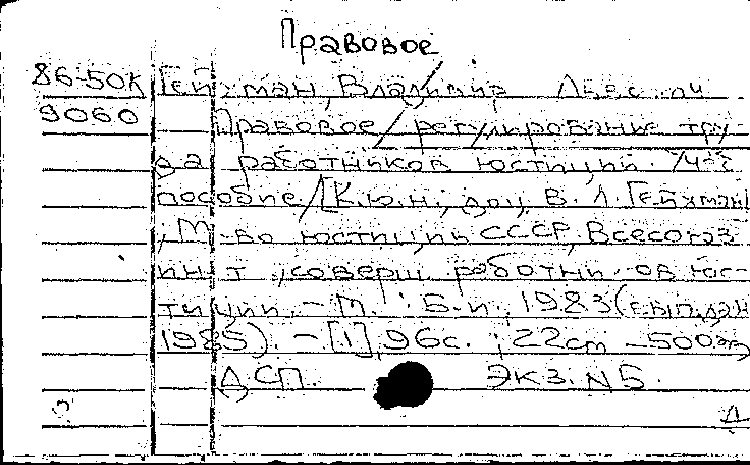 Правовое
86-50К Гейхман, Владимир Львович
9060 Правовое регулирование тру-
да работников юстиции. Уч.
пособие / [К.ю.н., доц. В. Л. Гейхман]
; М-во юстиции СССР, Всесоюз.
ин-т соверш. работников юс-
тиции. - М. : Б.и., 1983 (вып. дан.
1985). - [1], 96 с. ; 22 см - 500 экз
ДСП. Экз. N 5.
Д